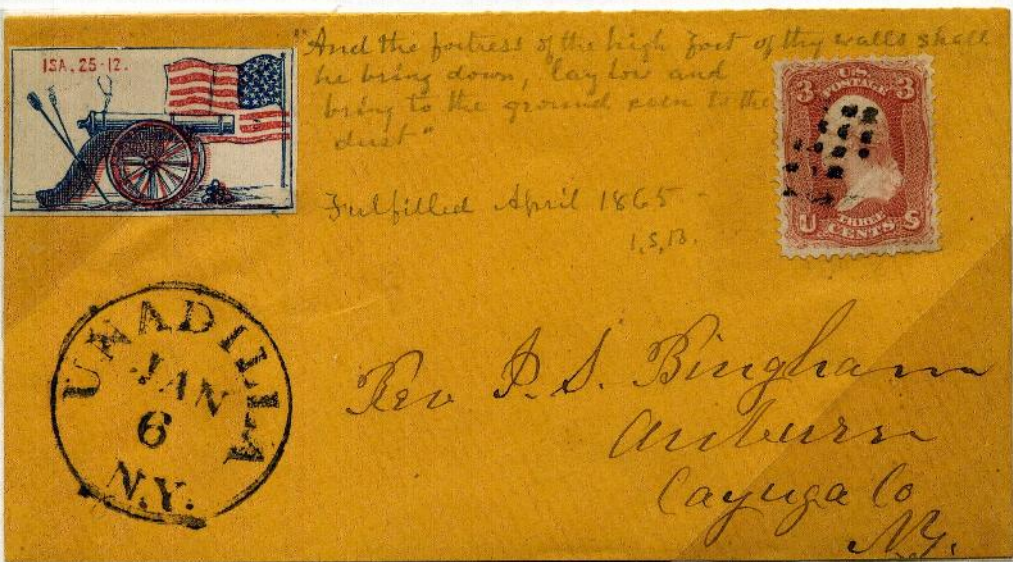 ISA, 25-12.
"And the fortress of the high fort of thy walls shall
he bring down, lay low and
bring to the ground even to the
dust"
Fulfilled April 1865 -
I.S.B.
U.S.
POSTAGE
3 3
THREE
CENTS
U S
UNADILLA
JAN
6
N.Y.
Rev I. S. Bingham
Auburn
Cayuga Co
N.Y.